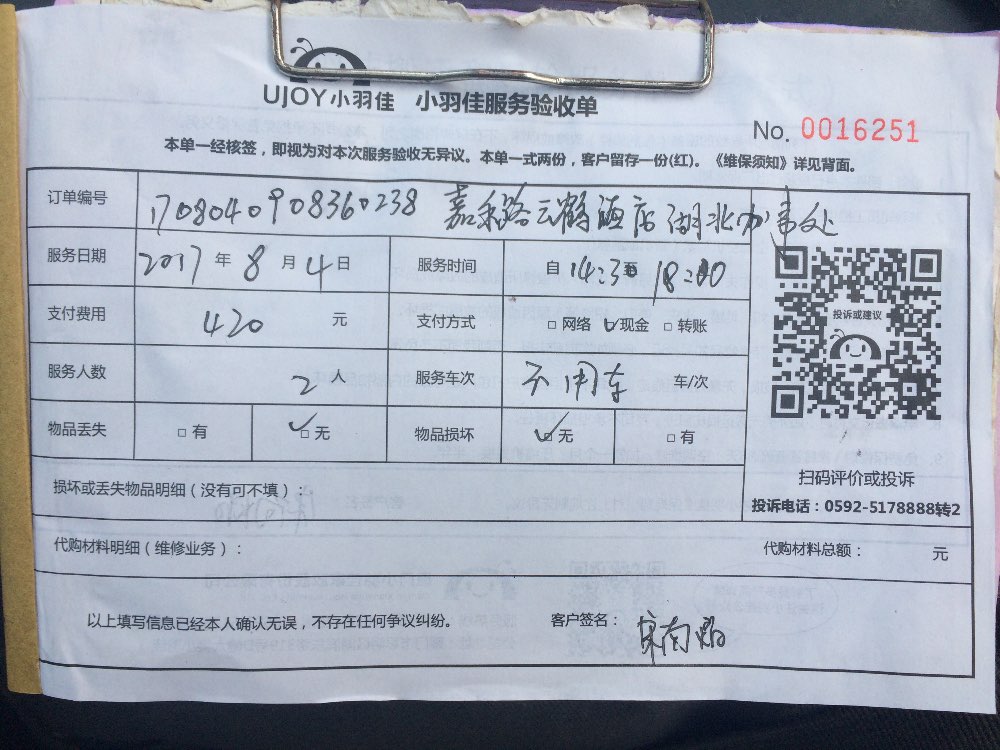 UJOY小羽佳 小羽佳服务验收单
No. 0016251
本单一经核签，即视为对本次服务验收无异议。本单一式两份，客户留存一份(红)。《维保须知》详见背面。
订单编号 1708040908360238 嘉禾路云鹤酒店湖北办事处
服务日期 2017 年 8 月 4 日 服务时间 自 14:3 至 18:00
投诉或建议
支付费用 420 元 支付方式 □ 网络 ✓现金 □ 转账
服务人数 2人 服务车次 不用车 车/次
物品丢失 □ 有 ✓□ 无 物品损坏 ✓□ 无 □ 有
扫码评价或投诉
损坏或丢失物品明细（没有可不填）：
投诉电话：0592-5178888转2
代购材料明细（维修业务）： 代购材料总额： 元
以上填写信息已经本人确认无误，不存在任何争议纠纷。 客户签名：